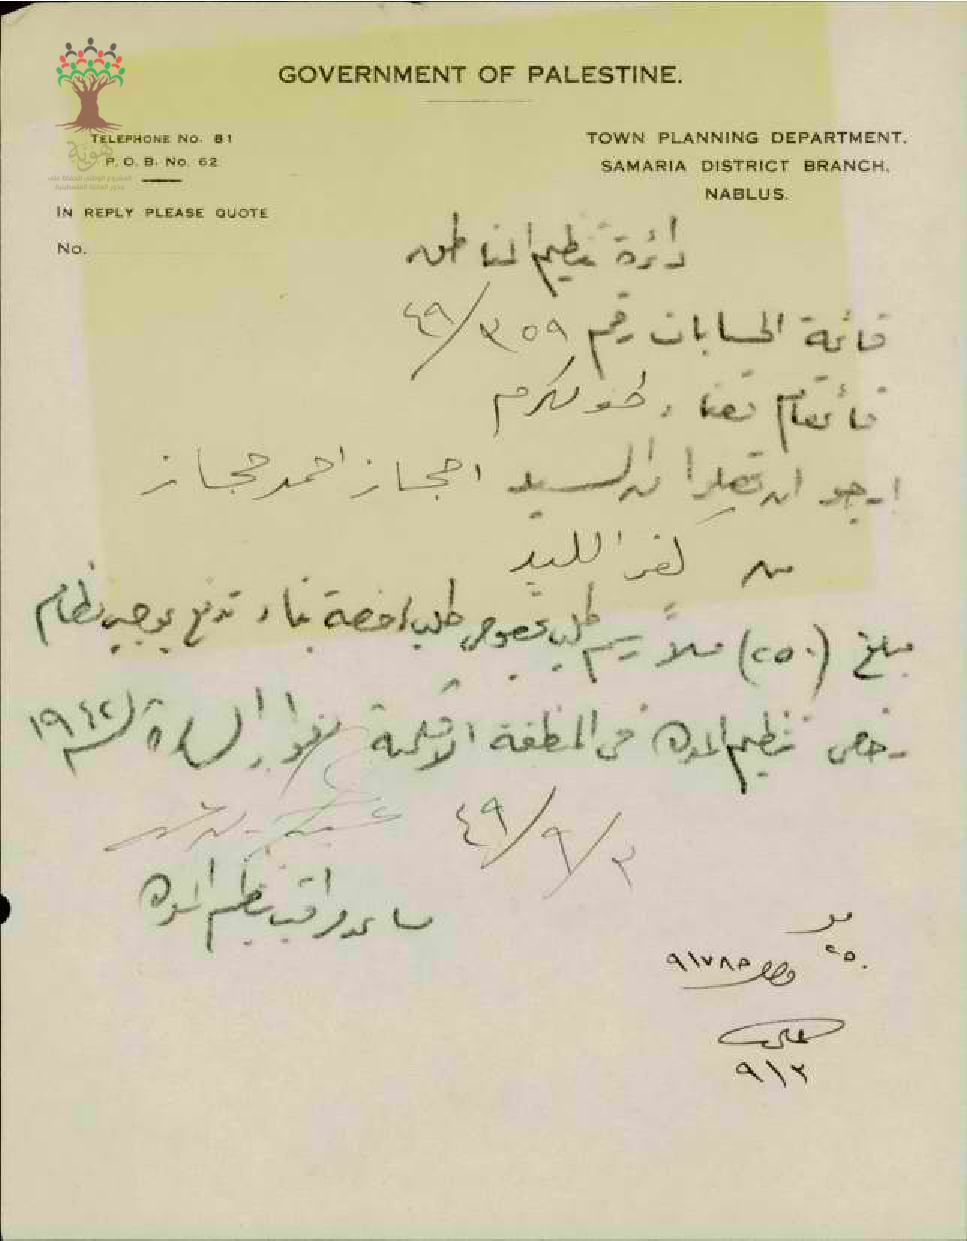 GOVERNMENT OF PALESTINE.
TELEPHONE NO. 81
P. O. B. No. 62
IN REPLY PLEASE QUOTE
No.
TOWN PLANNING DEPARTMENT.
SAMARIA DISTRICT BRANCH.
NABLUS.
هوية
دائرة تنظيم المناطق
قائمة الحسابات رقم ٣٥٩/٤٩
قائمقام قضاء طولكرم
ارجو ان تقبلوا من السيد احجاز احمد حجاز
من كفر اللبد
مبلغ (٢٥٠) ملاً رسم طلب بخصوص طلب رخصة بناء تدفع بموجب نظام
رخص تنظيم المدن في المنطقة الاقليمية لسنة ١٩٤٢
٣/٩/٤٩
مساعد مراقب تنظيم المدن
٢٥٠
٩١٧٨٥
٩/٣